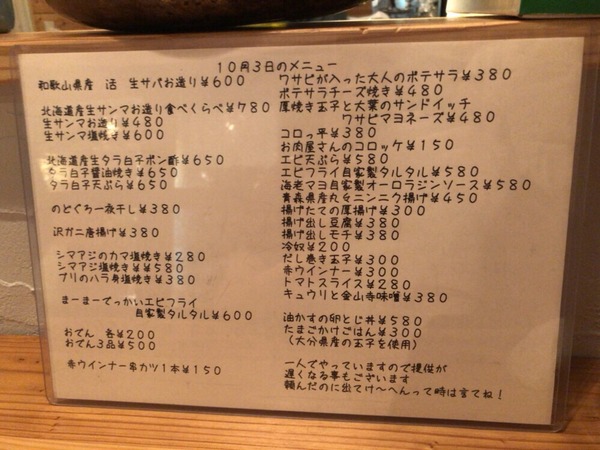 10月3日のメニュー
和歌山県産 活 生サバお造り¥600
北海道産生サンマお造り食べくらべ¥780
生サンマお造り¥480
生サンマ塩焼き¥600
北海道産生タラ白子ポン酢¥650
タラ白子醤油焼き¥650
タラ白子天ぷら¥650
のどぐろ一夜干し¥380
沢ガニ唐揚げ¥380
シマアジのカマ塩焼き¥280
シマアジ塩焼き¥¥580
ブリのハラ身塩焼き¥380
まーまーでっかいエビフライ
自家製タルタル¥600
おでん 各¥200
おでん3品¥500
赤ウインナー串カツ1本¥150
ワサビが入った大人のポテサラ¥380
ポテサラチーズ焼き¥480
厚焼き玉子と大葉のサンドイッチ
ワサビマヨネーズ¥480
コロっ平¥380
お肉屋さんのコロッケ¥150
エビ天ぷら¥580
エビフライ自家製タルタル¥580
海老マヨ自家製オーロラジンソース¥580
青森県産丸々ニンニク揚げ¥450
揚げたての厚揚げ¥300
揚げ出し豆腐¥380
揚げ出しモチ¥380
冷奴¥200
だし巻き玉子¥300
赤ウインナー¥300
トマトスライス¥280
キュウリと金山寺味噌¥380
油かすの卵とじ丼¥580
たまごかけごはん¥300
(大分県産の玉子を使用)
一人でやっていますので提供が
遅くなる事もございます
頼んだのに出てけ〜へんって時は言てね!